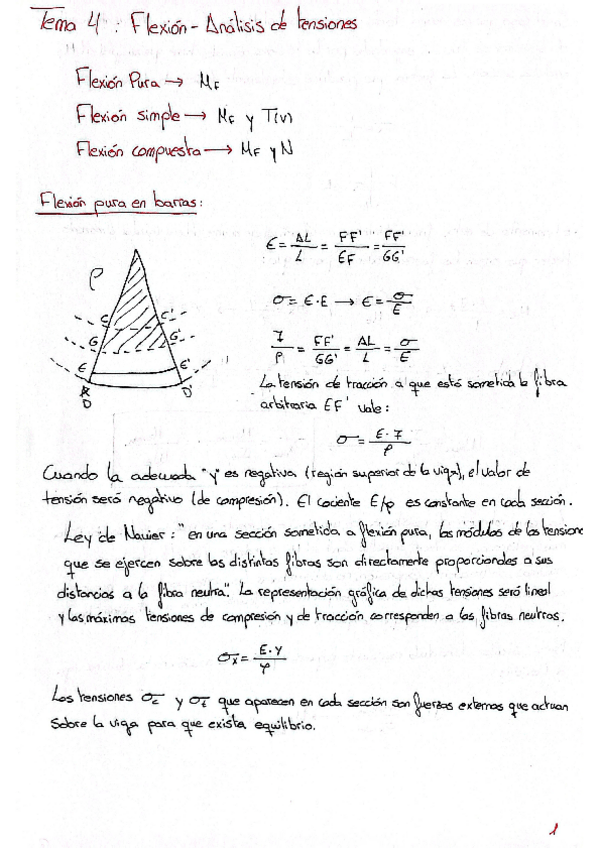 Tema 4: Flexión - Análisis de tensiones
Flexión Pura → MF
Flexión simple → MF y T(v)
Flexión compuesta → MF y N
Flexión pura en barras:
ρ
C C'
G G'
E E'
D D'
ε = ΔL/L = FF'/EF = FF'/GG'
σ = ε·E → ε = σ/E
7/ρ = FF'/GG' = ΔL/L = σ/E
La tensión de tracción a que está sometida la fibra
arbitraria EF' vale:
σ = E·7/ρ
Cuando la "y" es negativa (región superior de la viga), el valor de
tensión será negativo (de compresión). El cociente E/ρ es constante en cada sección.
Ley de Navier: "en una sección sometida a flexión pura, los módulos de las tensione
que se ejercen sobre las distintas fibras son directamente proporcionales a sus
distancias a la fibra neutra". La representación gráfica de dichas tensiones será lineal
y las máximas tensiones de compresión y de tracción corresponden a las fibras neutras.
σx = E·y/ρ
Las tensiones σc y σt que aparecen en cada sección son fuerzas externas que actuan
sobre la viga para que exista equilibrio.
1